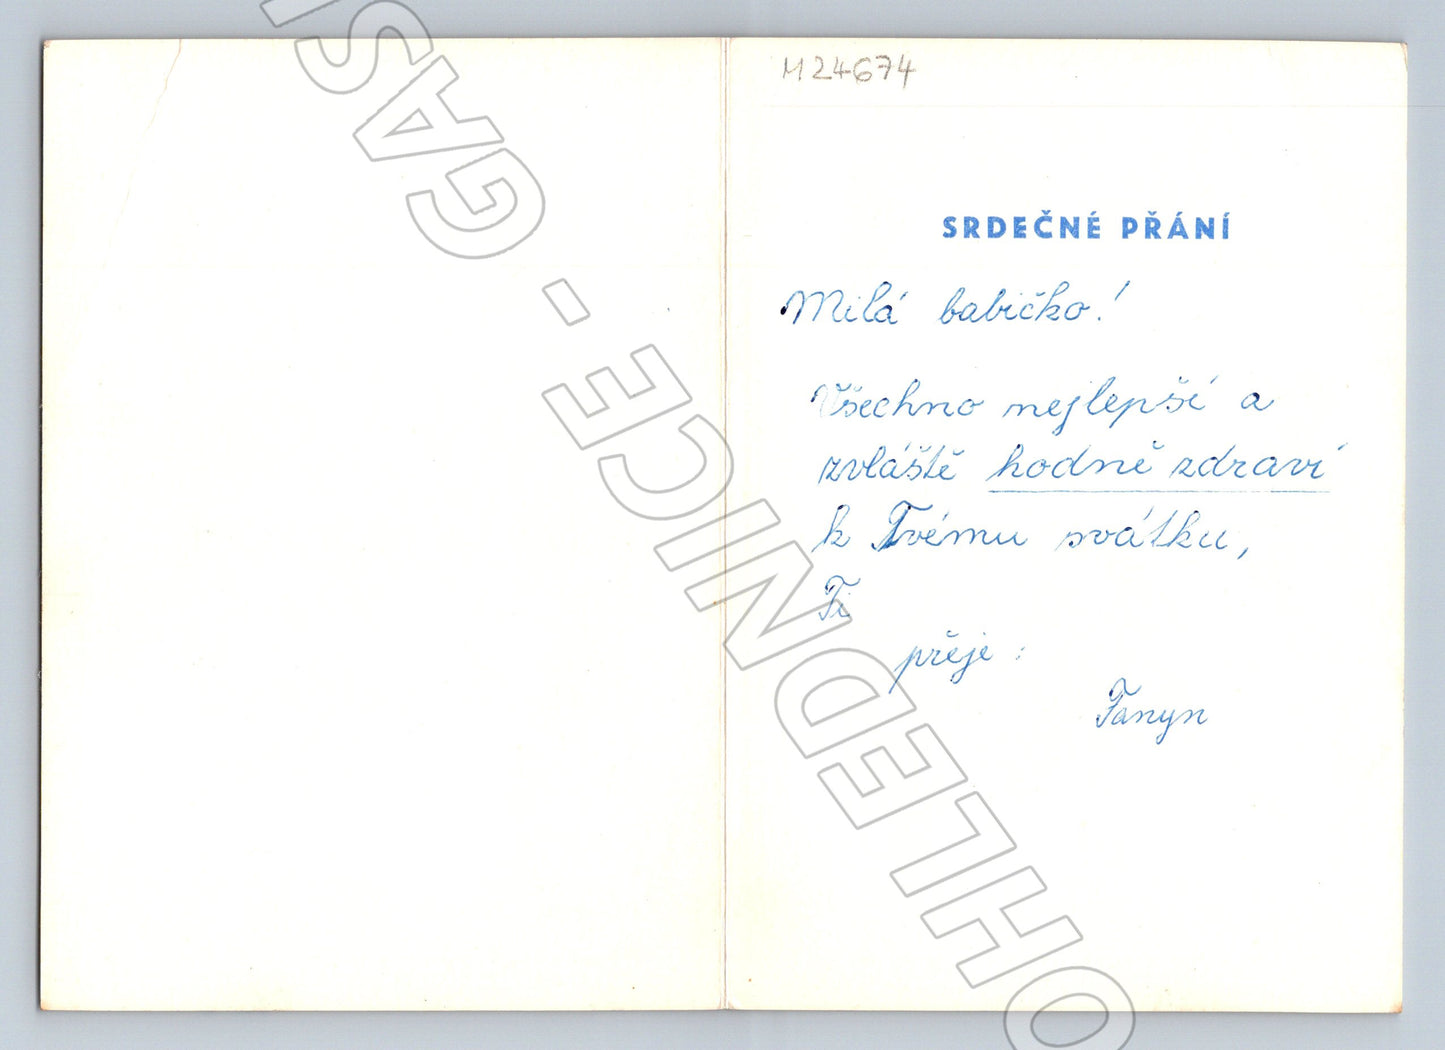 M24674
SRDEČNÉ PŘÁNÍ
Milá babičko!
Všechno nejlepší a
zvláště hodně zdraví
k Tvému svátku,
Ti
přeje:
OHLEDNICE - GAS